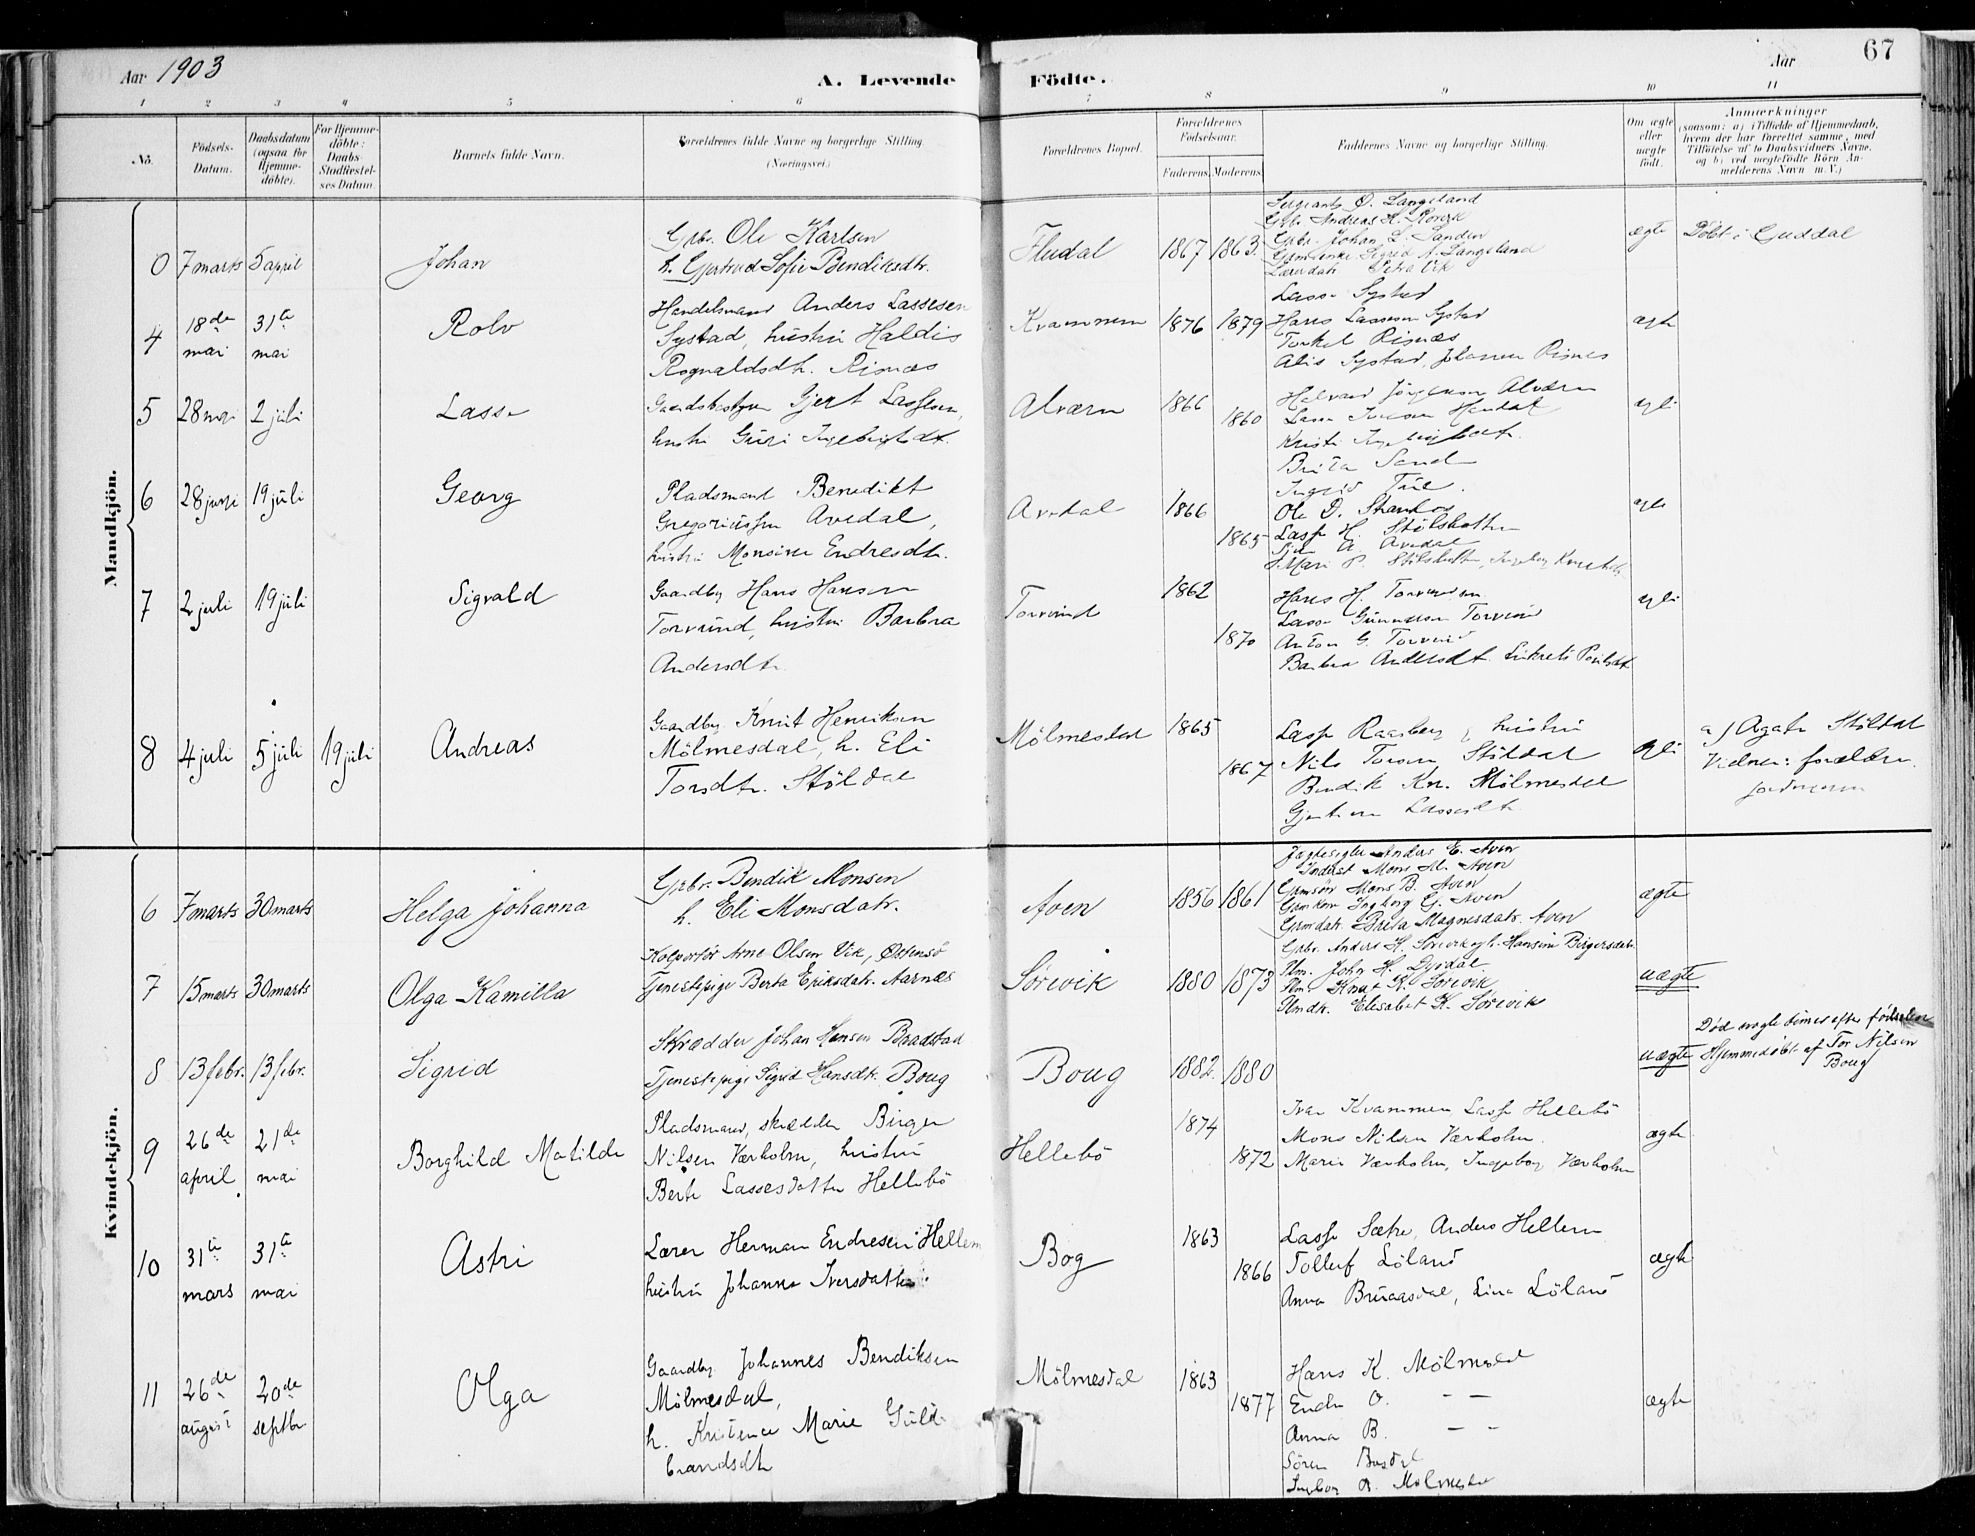 Aar 1903
A. Levende Födte.
Aar
67
1 2 3 4 5 6 7 8 9 10 11
No.
Födsels-Datum.
Daabsdatum (ogsaa for Hjemmedöbte).
For Hjemmedöbte: Daabs Stadfæstelses Datum.
Barnets fulde Navn.
Forældrenes fulde Navne og borgerlige Stilling.
(Næringsvei.)
Forældrenes Bopæl.
Forældrenes Födselsaar.
Faderens. Moderens.
Faddernes Navne og borgerlige Stilling.
Om ægte eller uægte födt.
Anmærkninger
(saasom: a) i Tilfælde af Hjemmedaab,
hvem der har forrettet samme, med
Tilföielse af to Daabsvidners Navne,
og b) ved uægtefödte Börn Anmelderens Navn m. V.)
Mandkjön.
0 7 marts 5 april Johan
Gbr. Ole Karlsen
h. Gjertrud Sofie Bendiksdtr.
Fludal 1867 1863.
Sergeant O. Langeland
Gbr. Andreas H.
Gbr. Johan L. Sanden
Sigrid A. Langeland
Petra Vik
ægte
Døbt i Guddal
4 18de mai 31te mai Rolv
Handelsmand Anders Lassesen
Systad, hustru Haldis
Rognaldsdtr. Risnæs
Kvammen 1876 1879
Lasse Systad
Hans Lassesen Systad
Torkel Risnæs
Alis Systad, Johanne Risnes
ægte
5 28 mai 2 juli Lasse
Gjert Lassesen,
hustru Guri Ingebrigtsdt.
Alværn 1866 1860
Halvard Jørgensen Alværn
Lasse
Brita Sand
6 28 juni 19 juli Georg
Pladsmand Benedikt
Gregoriussen Avedal,
hustru Monsine Endresdtr.
Avedal 1866 1865
Ingrid
Ole D.
Lasse H. Stölsbotten
A. Avedal
Mari P. Stölsbotten, Ingeborg
7 2 juli 19 juli Sigvald
Gaardbr. Hans Hansen
Torvund, hustru Barbra
Andersdtr.
Torvund 1862 1870
Hans H. Torvund
Lasse Gunnarson Torvund
Anton G. Torvund
Barbra Andersdt.
8 4 juli 5 juli 19 juli Andreas
Gaardbr. Knut Henriksen
Mölmesdal, h. Eli
Torsdtr. Stöldal
Mölmesdal 1865 1867
Lasse Raasberg, hustru
Nils Torsen Stöldal
Bendik Kn. Mölmesdal
Lassesdtr.
a) Agate Stöldal
Vidner: forældre
Kvindekjön.
6 7 marts 30 marts Helga Johanna
Gbr. Bendik Monsen
h. Eli Monsdatr.
Aven 1856 1861
Anders E. Aven
Inderst Mons M. Aven
Gbrmsön Mons B. Aven
Ingborg G. Aven
Brita Magnesdatr. Aven
ægte
7 15 marts 30 marts Olga Kamilla
Kolportør Arne Olsen Vik, Østensø
Tjenestepige Berta Eriksdatr. Aarnæs
Sørevik 1880 1873
Gbr. Anders H. Sørevik og h. Hansine Birgersdatr.
Plm. John H. Dysdal
Plm. Knut K. Sørevik
Plmdtr. Elisabet K. Sørevik
uægte
8 13 febr. 13 febr. Sigrid
Skrædder Johan Hansen Baadstad
Tjenestepige Sigrid Hansdtr. Boug
Boug 1882. 1880
uægte
Død nogle timer efter fødselen
Hjemmedøbt af Tor Nilsen
Boug
9 26de april 21de mai Borghild Matilde
Pladsmand, skrædder Birger
Nilsen Værholm, hustru
Berte Lassesdatter Hellebö
Hellebö 1874 1872
Ivar Kvammen, Lasse Hellebö
Mons Nilsen Værholm.
Marie Værholm, Ingeborg Værholm
ægte
10 31te mars 31te mai Astri
Lærer Herman Endresen Hellem
hustru Johanne Iversdatter
Bog 1863 1866
Lasse Sætre, Anders Hellem
Tollef Löland
Anna Bruaasdal, Lina Löland
ægte
11 26de august 20de septbr. Olga
Gaardbr. Johannes Bendiksen
Mölmesdal,
h. Kristence Marie Guldbrandsdtr
Mölmesdal 1863 1877
Hans K. Mölmesdal
Endre O. — —
Anna B. — —
Sören
Ingborg B. Mölmesdal
ægte